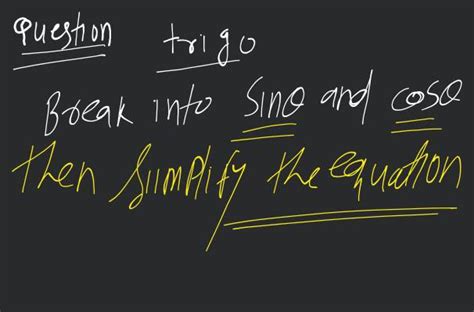 Question trigo
Break into sinθ and cosθ
then Simplify the equation